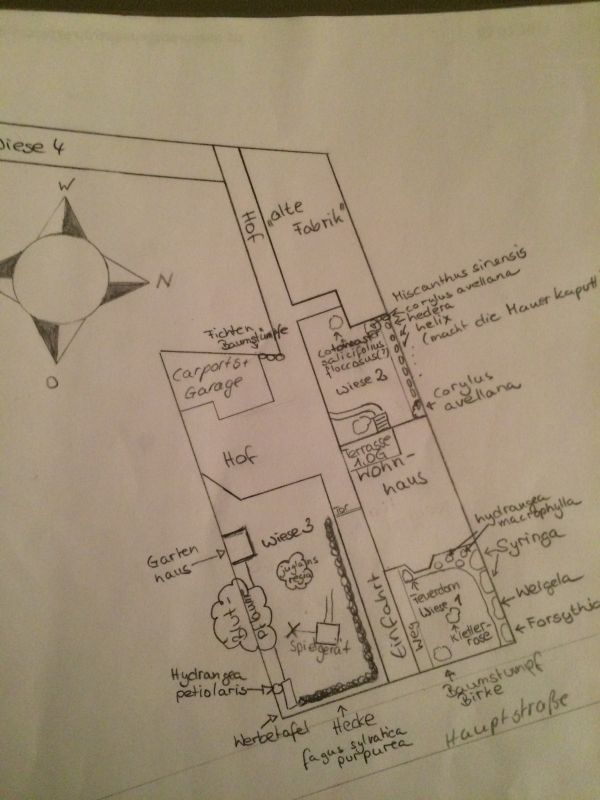 Wiese 4
W
N
O
Hof
"alte
Fabrik"
Miscanthus sinensis
corylus avellana
hedera
helix
(macht die Mauer kaputt!
Fichten
Baumstümpfe
Cotoneaster
salicifolius
floccosus(?)
Wiese 2
Carports+
Garage
Corylus
avellana
Terrasse
1.OG
Wohn-
haus
Hof
Tor
hydrangea
macrophylla
Syringa
Weigela
Forsythia
Wiese 3
juglans
regia
Garten
haus
Blut-
pflaume
Spielgerät
Einfahrt
Weg
Feuerdorn
Wiese 1
Kletter-
rose
Hydrangea
petiolaris
Werbetafel
Hecke
fagus sylvatica
purpurea
Baumstumpf
Birke
Hauptstraße